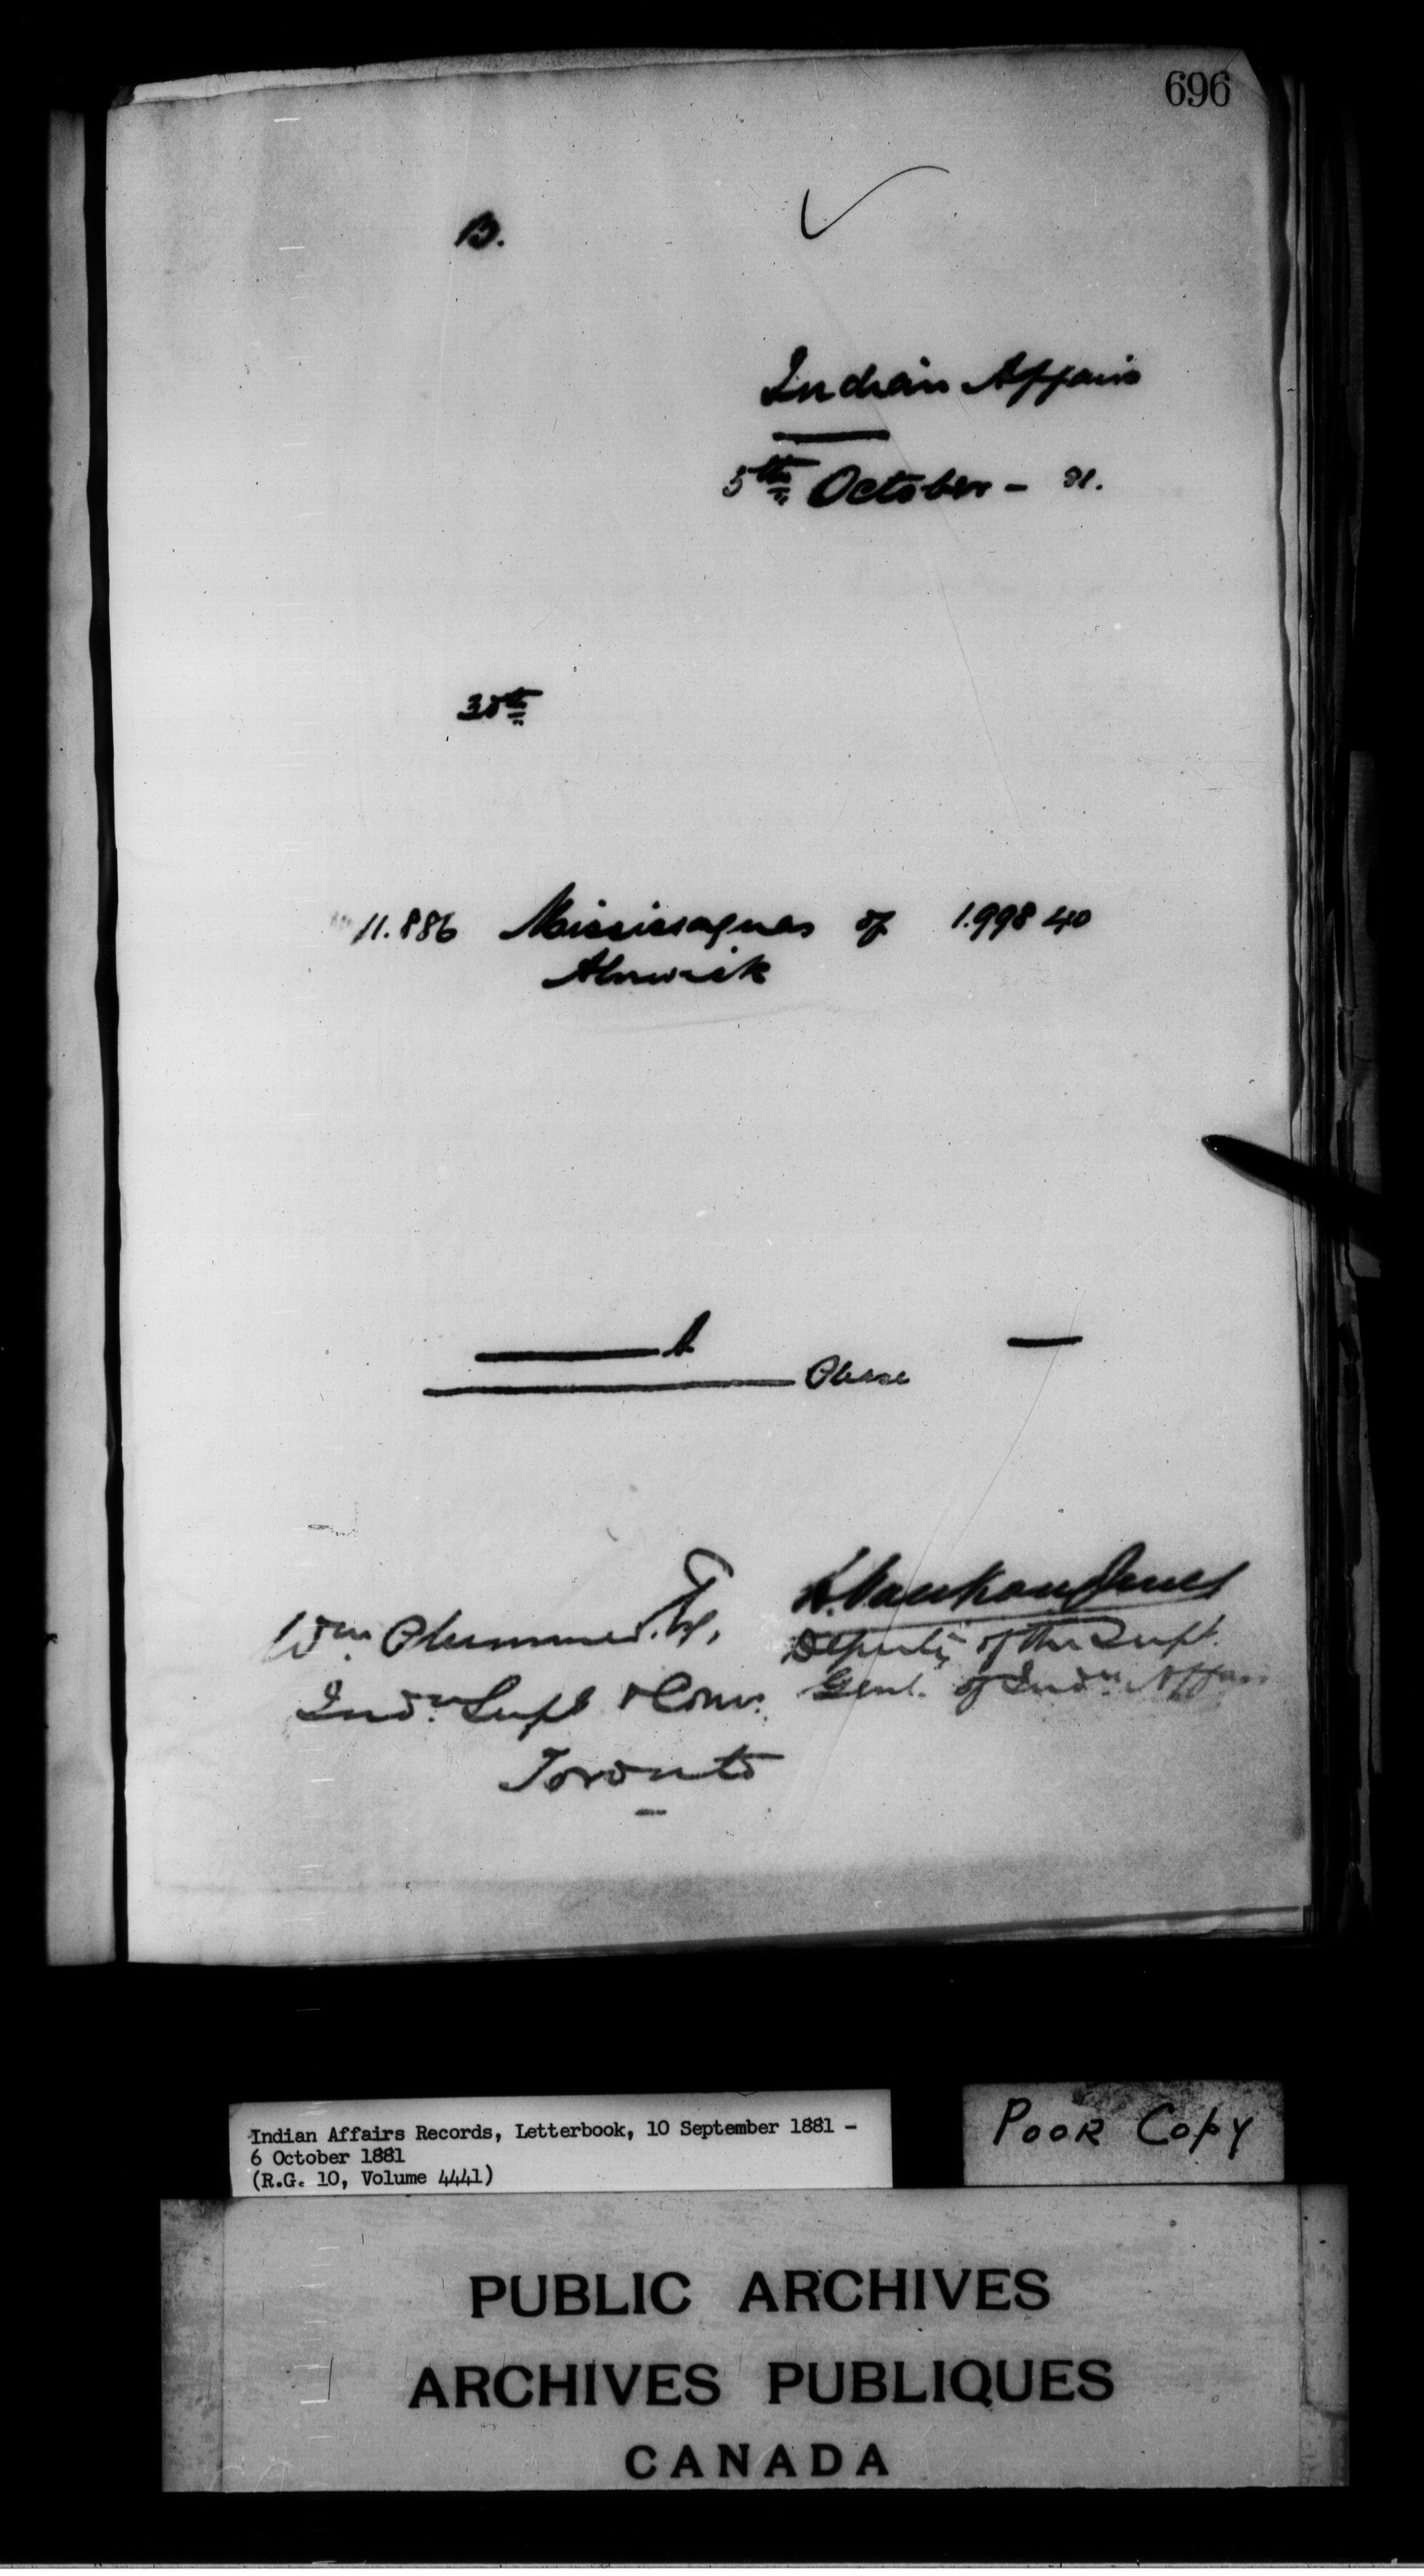 696
B.
Indian Affairs
5th October - 81.
30th
11.886 Mississaguas of 1.998 40
Alnwick
Please
L. Vankoughnet
Wm Plummer. Esq,
Deputy of the Supt.
Indn. Supt & Comr.
Genl. of Indn. Affairs
Toronto
Indian Affairs Records, Letterbook, 10 September 1881 -
6 October 1881
(R.G. 10, Volume 4441)
POOR COPY
PUBLIC ARCHIVES
ARCHIVES PUBLIQUES
CANADA